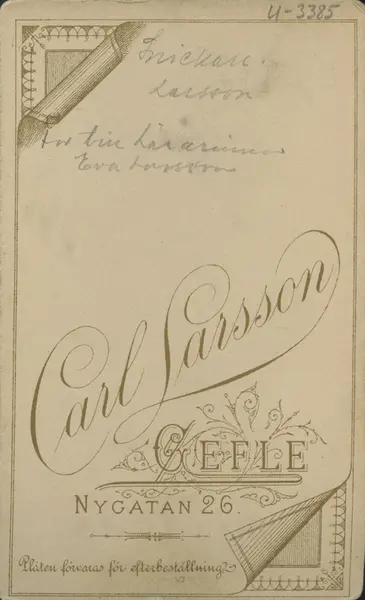 U-3385
Snickare
Larsson
Far till Lärarinnan
Eva Larsson
Carl Larsson
GEFLE
NYGATAN 26.
Plåten förvaras för efterbeställning